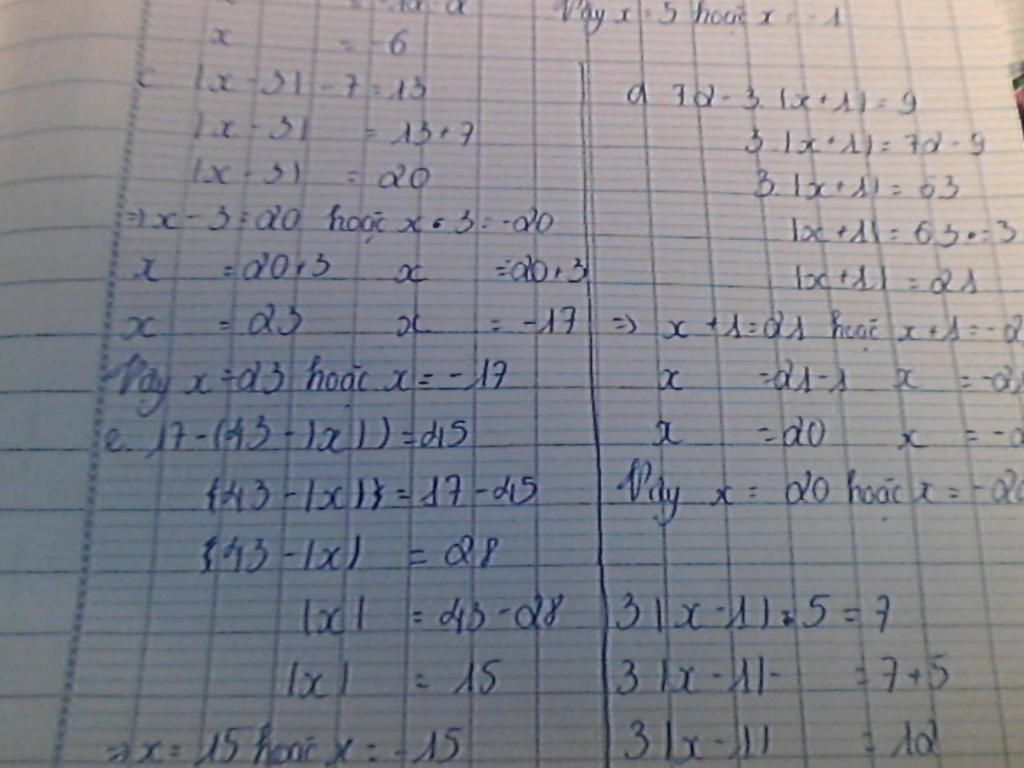 x = -6
c |x - 3| - 7 = 13
|x - 3| = 13 + 7
|x - 3| = 20
=> x - 3 = 20 hoặc x - 3 = -20
x = 20 + 3 x = -20 + 3
x = 23 x = -17
Vậy x = 23 hoặc x = -17
e. 17 - (43 - |x|) = 45
(43 - |x|) = 17 - 45
43 - |x| = 28
|x| = 43 - 28
|x| = 15
=> x = 15 hoặc x = -15
Vậy x = 5 hoặc x = -1
d 72 - 3. |x + 1| = 9
3. |x + 1| = 72 - 9
3. |x + 1| = 63
|x + 1| = 63 : 3
|x + 1| = 21
=> x + 1 = 21 hoặc x + 1 = -2
x = 21 - 1 x = -21
x = 20 x = -2
Vậy x = 20 hoặc x = -2
3 |x - 1| - 5 = 7
3 |x - 1| = 7 + 5
3 |x - 1| = 12